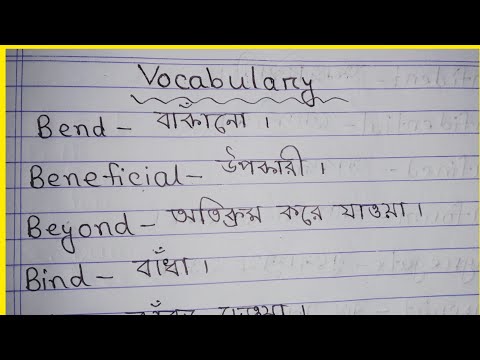 Vocabulary
Bend - বাঁকানো ।
Beneficial - উপকারী ।
Beyond - অতিক্রম করে যাওয়া ।
Bind - বাঁধা ।